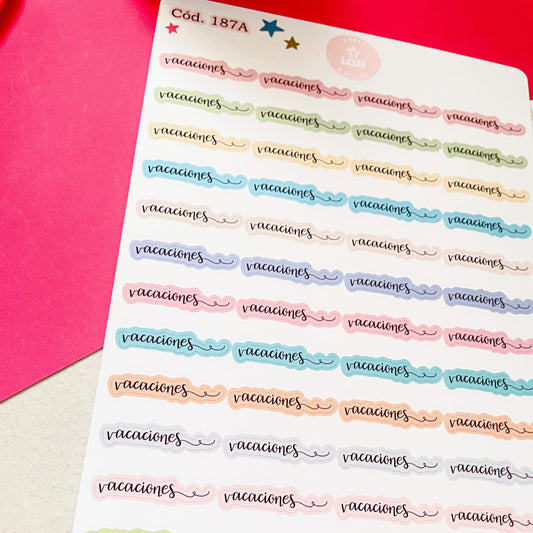 Cód. 187A
LDN
vacaciones vacaciones vacaciones vacaciones
vacaciones vacaciones vacaciones vacaciones
vacaciones vacaciones vacaciones vacaciones
vacaciones vacaciones vacaciones vacaciones
vacaciones vacaciones vacaciones vacaciones
vacaciones vacaciones vacaciones vacaciones
vacaciones vacaciones vacaciones vacaciones
vacaciones vacaciones vacaciones vacaciones
vacaciones vacaciones vacaciones vacaciones
vacaciones vacaciones vacaciones vacaciones
vacaciones vacaciones vacaciones vacaciones